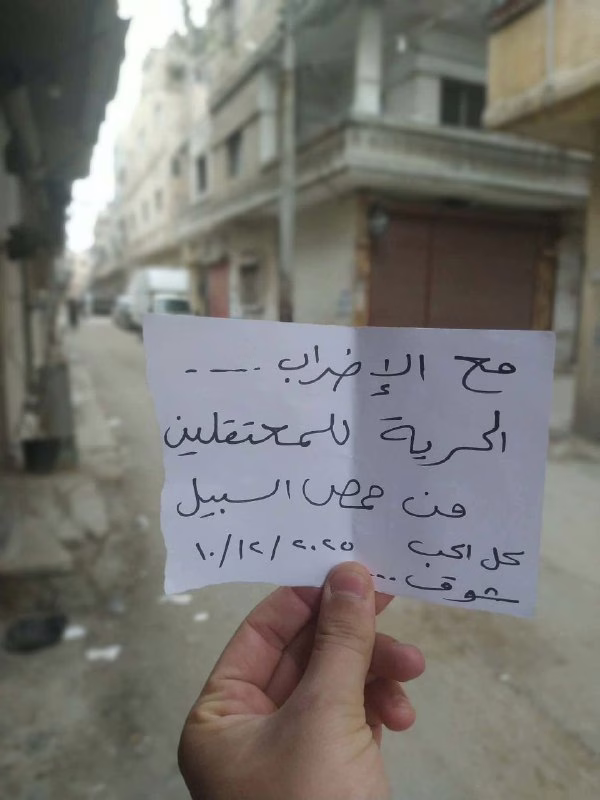 مع الإضراب ....
الحرية للمعتقلين
من حمص السبيل
كل الحب ١٠/١٢/٢٠٢٥
شوق...